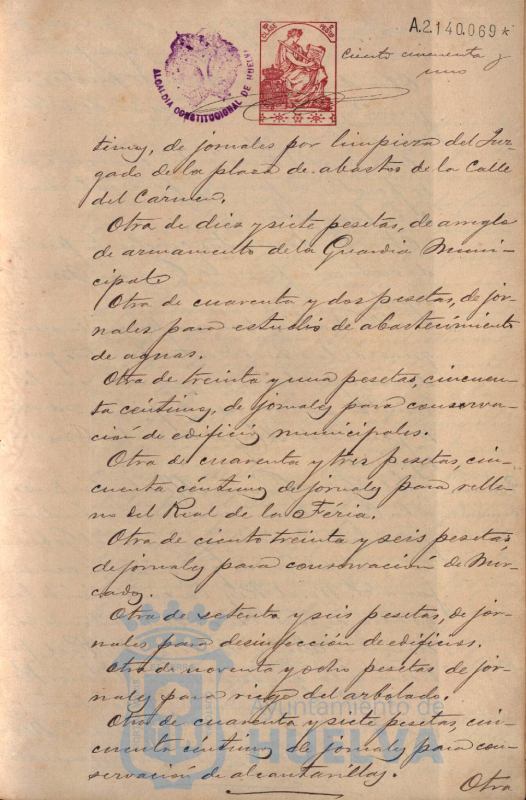 A.2.140.069*
Ciento cincuenta y
uno
ALCALDIA CONSTITUCIONAL DE HUELVA
timos, de jornales por limpieza del Juz-
gado de la plaza de abastos de la Calle
del Cármen.
Otra de diez y siete pesetas, de arreglo
de armamento de la Guardia Muni-
cipal
Otra de cuarenta y dos pesetas, de jor-
nales para estudio de abastecimiento
de aguas.
Otra de treinta y una pesetas, cincuen-
ta céntimos, de jornales para conserva-
ción de edificios municipales.
Otra de cuarenta y tres pesetas, cin-
cuenta céntimos de jornales para relle-
no del Real de la Féria.
Otra de ciento treinta y seis pesetas
de jornales para conservación de Mer-
cados.
Otra de setenta y seis pesetas, de jor-
nales para desinfección de edificios.
Otra de noventa y ocho pesetas de jor-
nales para riego del arbolado.
Otra de cuarenta y siete pesetas, cin-
cuenta céntimos de jornales para con-
servación de alcantarillas.
Otra
Ayuntamiento de
HUELVA